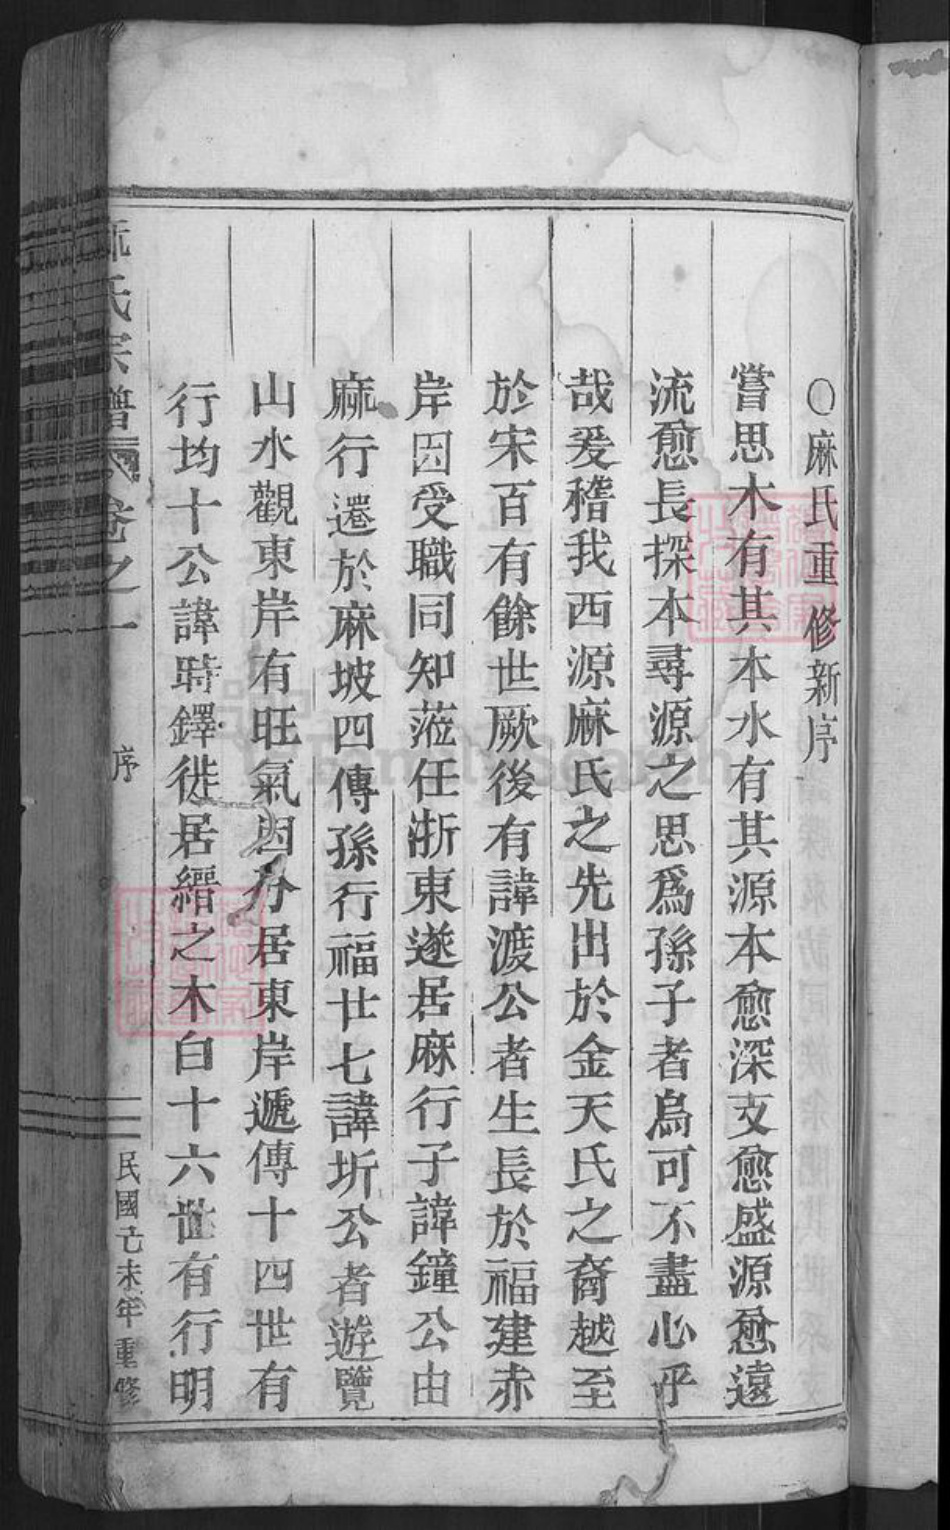 ○麻氏重修新序
嘗思木有其本水有其源本愈深支愈盛源愈遠
流愈長探本尋源之思爲孫子者烏可不盡心乎
哉爰稽我西源麻氏之先出於金天氏之裔越至
於宋百有餘世厥後有諱渡公者生長於福建赤
岸因受職同知蒞任浙東遂居麻行子諱鐘公由
麻行遷於麻坡四傳孫行福廿七諱圻公者遊覽
山水觀東岸有旺氣因分居東岸遞傳十四世有
行均十公諱時鐸徙居縉之木白十六世有行明
麻氏宗譜 卷之一 序 民國己未年重修
FamilySearch